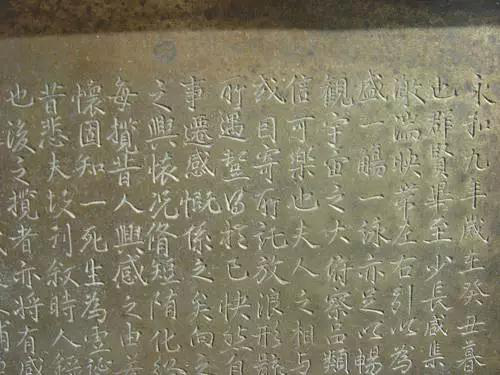 永和九年歲在癸丑暮
也群賢畢至少長咸集
激湍映帶左右引以為
盛一觴一詠亦足以暢
觀宇宙之大俯察品類
信可樂也夫人之相與
或因寄所託放浪形骸
所遇蹔得於己快然自
事遷感慨係之矣向之
之興懷況脩短隨化終
每攬昔人興感之由若
懷固知一死生為虛誕
昔悲夫故列敘時人錄
也後之攬者亦將有感